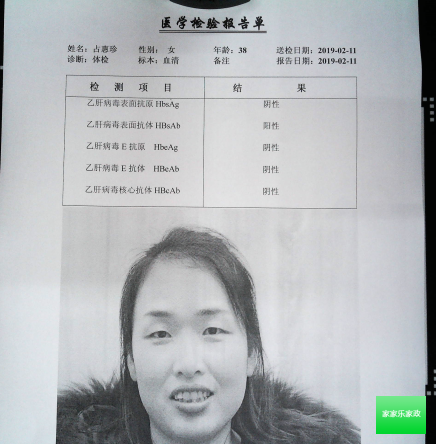 医学检验报告单
姓名：占惠珍 性别： 女 年龄：38 送检日期：2019-02-11
诊断：体检 标本：血清 备注 报告日期：2019-02-11
检 测 项 目 结 果
乙肝病毒表面抗原 HbsAg 阴性
乙肝病毒表面抗体 HBsAb 阳性
乙肝病毒 E 抗原 HbeAg 阴性
乙肝病毒 E 抗体 HBeAb 阴性
乙肝病毒核心抗体 HBcAb 阴性
家家乐家政